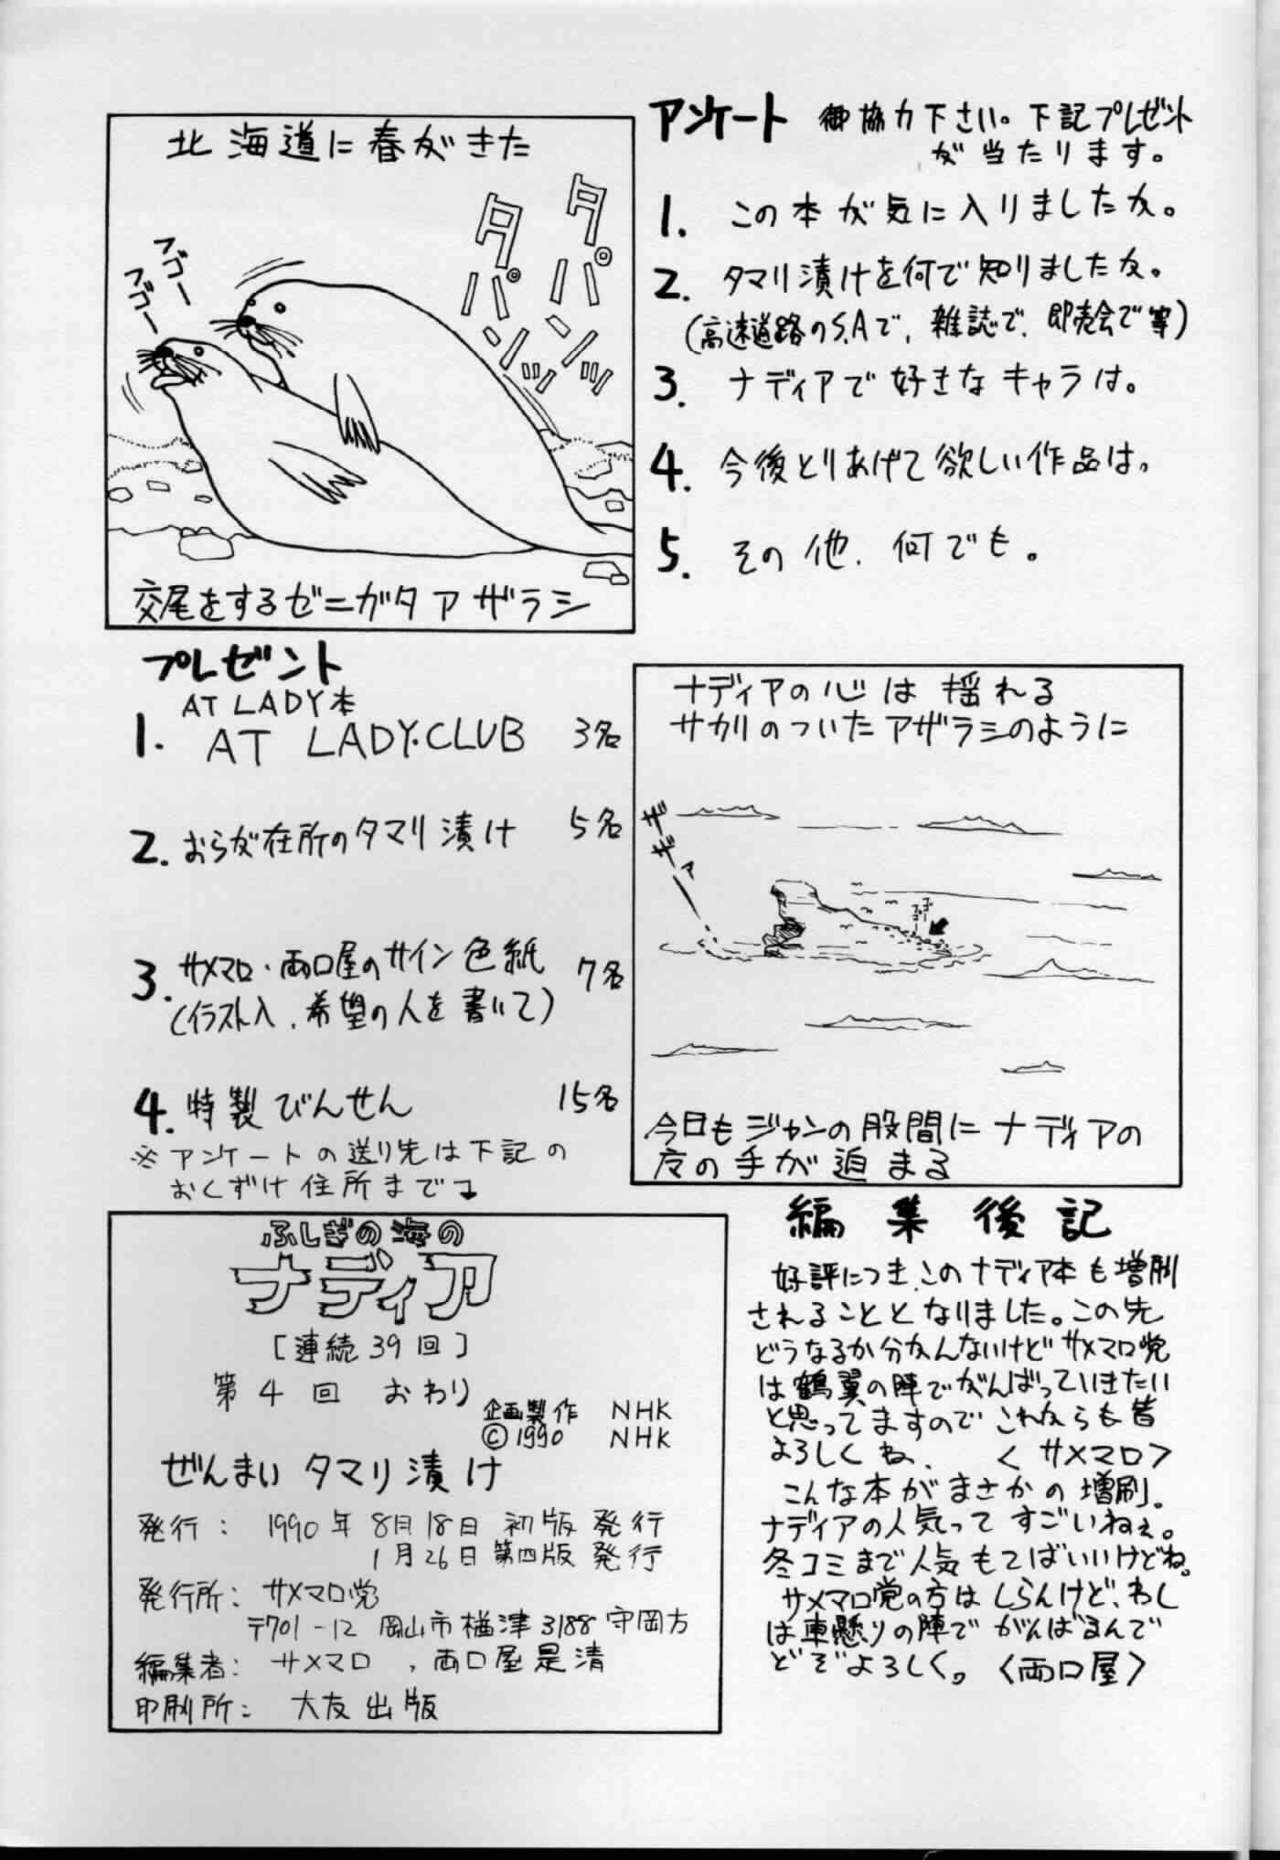 アンケート 御協力下さい。下記プレゼント
が当たります。
1. この本が気に入りましたか。
2. タマリ漬けを何で知りましたか。
(高速道路のS.Aで、雑誌で、即売会で等)
3. ナディアで好きなキャラは。
4. 今後とりあげて欲しい作品は。
5. その他、何でも。
北海道に春がきた
タパンッ
タパンッ
フゴー
フゴー
交尾をするゼニガタアザラシ
プレゼント
AT LADY本
1. AT LADY.CLUB 3名
2. おらが在所のタマリ漬け 5名
3. サメマロ・両口屋のサイン色紙 7名
(イラスト入、希望の人を書いて)
4. 特製びんせん 15名
※アンケートの送り先は下記の
おくずけ住所まで
ナディアの心は揺れる
サカリのついたアザラシのように
ザザァ
今日もジャンの股間にナディアの
魔の手が迫まる
ふしぎの海の
ナディア
[連続39回]
第4回 おわり
企画製作 NHK
©1990 NHK
ぜんまいタマリ漬け
発行: 1990年8月18日 初版発行
1月26日第四版発行
発行所: サメマロ党
〒701-12 岡山市楢津3188守岡方
編集者: サメマロ、両口屋是清
印刷所: 大友出版
編集後記
好評につき、このナディア本も増刷
されることとなりました。この先
どうなるか分かんないけどサメマロ党
は鶴翼の陣でがんばっていきたい
と思ってますのでこれからも皆
よろしくね、 〈サメマロ〉
こんな本がまさかの増刷。
ナディアの人気ってすごいねぇ。
冬コミまで人気もてばいいけどね。
サメマロ党の方はしらんけど、わし
は車懸りの陣でがんばるんで
どぞよろしく。〈両口屋〉